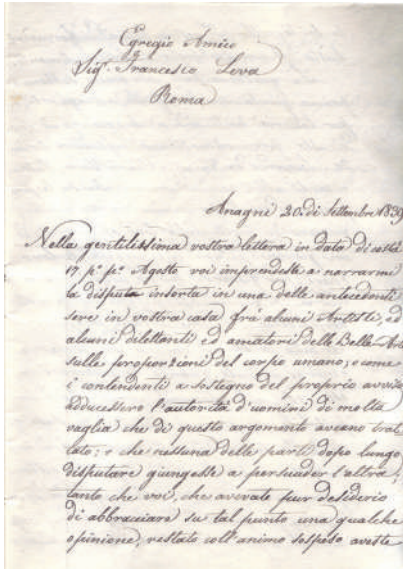 Egregio Amico
Sigr. Francesco Leva
Roma
Anagni 20. di Settembre 1839
Nella gentilissima vostra lettera in data di costà
17 po. po. Agosto voi imprendeste a narrarmi
la disputa insorta in una delle antecedenti
sere in vostra casa frà alcuni Artisti, ed
alcuni dilettanti ed amatori delle Belle Arti
sulle proporzioni del corpo umano; e come
i contendenti a sostegno del proprio avviso
adducessero l'autorità d'uomini di molta
vaglia che di questo argomento aveano trat
tato; e che nessuna delle parti dopo lungo
disputare giungesse a persuader l'altra;
tanto che voi, che avevate pur desiderio
di abbracciare su tal punto una qualche
opinione, restato coll'animo sospeso aveste